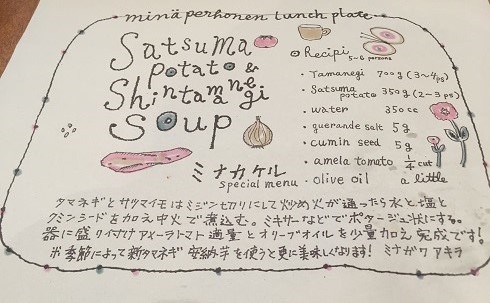 minä perhonen lunch plate
Satsuma
potato &
Shintamanegi
Soup
Recipi
5-6 persons
・Tamanegi 700g (3~4ps)
・Satsuma potato 350g (2~3 ps)
・water 350cc
・guerande salt 5g
・cumin seed 5g
・amela tomato 1/4 cut
・olive oil a little
ミナカケル
special menu
タマネギとサツマイモはミジン切りにして炒め火が通ったら水と塩と
クミンシードを加え中火で煮込む。ミキサーなどでポタージュ状にする。
器に盛り付けアメーラトマト適量とオリーブオイルを少量加え完成です!
※季節によって新タマネギ 安納芋を使うと更に美味しくなります! ミナガワ アキラ